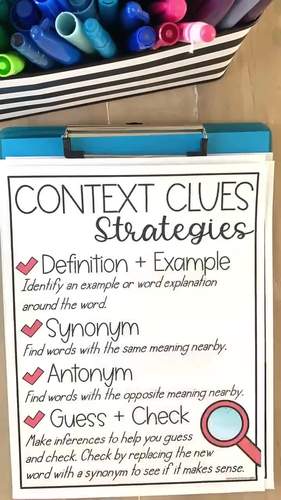 CONTEXT CLUES
Strategies
Definition + Example
Identify an example or word explanation
around the word.
Synonym
Find words with the same meaning nearby.
Antonym
Find words with the opposite meaning nearby.
Guess + Check
Make inferences to help you guess
and check. Check by replacing the new
word with a synonym to see if it makes sense.